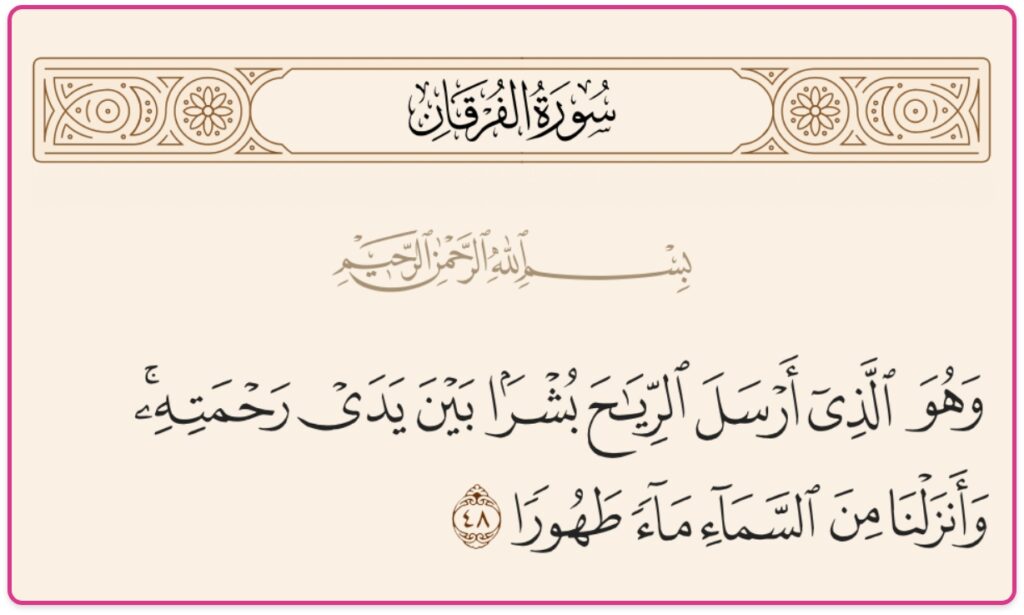 سُورَةُ الفُرۡقَانِ
بِسۡمِ ٱللَّهِ ٱلرَّحۡمَٰنِ ٱلرَّحِيمِ
وَهُوَ ٱلَّذِيٓ أَرۡسَلَ ٱلرِّيَٰحَ بُشۡرَۢا بَيۡنَ يَدَيۡ رَحۡمَتِهِۦۚ
وَأَنزَلۡنَا مِنَ ٱلسَّمَآءِ مَآءٗ طَهُورٗا ٤٨